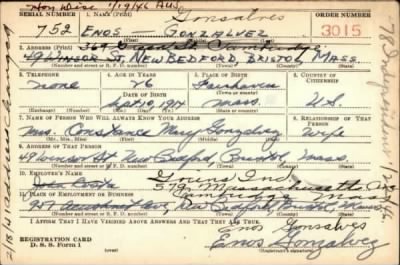 Gonsalves
SERIAL NUMBER 1. NAME (Print) ORDER NUMBER
752 ENOS GONZALVEZ 3015
2. ADDRESS (Print) 369 Cambridge
49 WINSOR ST. NEW BEDFORD, BRISTOL MASS.
(Number and street or R. F. D. number) (Town) (County) (State)
3. TELEPHONE 4. AGE IN YEARS 5. PLACE OF BIRTH 6. COUNTRY OF CITIZENSHIP
none 26 Fairhaven
DATE OF BIRTH (Town or county)
Sept 10, 1914 Mass. U.S.
(Exchange) (Number) (Mo.) (Day) (Yr.) (State or country)
7. NAME OF PERSON WHO WILL ALWAYS KNOW YOUR ADDRESS 8. RELATIONSHIP OF THAT PERSON
Mrs. Constance Mary Gonzalvez Wife
(Mr., Mrs., Miss) (First) (Middle) (Last)
9. ADDRESS OF THAT PERSON
49 Winsor St. New Bedford, Bristol, Mass.
(Number and street or R. F. D. number) (Town) (County) (State)
10. EMPLOYER'S NAME
579 Massachusetts Ave
11. PLACE OF EMPLOYMENT OR BUSINESS Cambridge Mass
Ave, New Bedford, Bristol, Mass.
(Number and street or R. F. D. number) (Town) (County) (State)
I AFFIRM THAT I HAVE VERIFIED ABOVE ANSWERS AND THAT THEY ARE TRUE.
Enos Gonsalves
REGISTRATION CARD
D. S. S. Form 1
Enos Gonzalvez
(Registrant's signature)